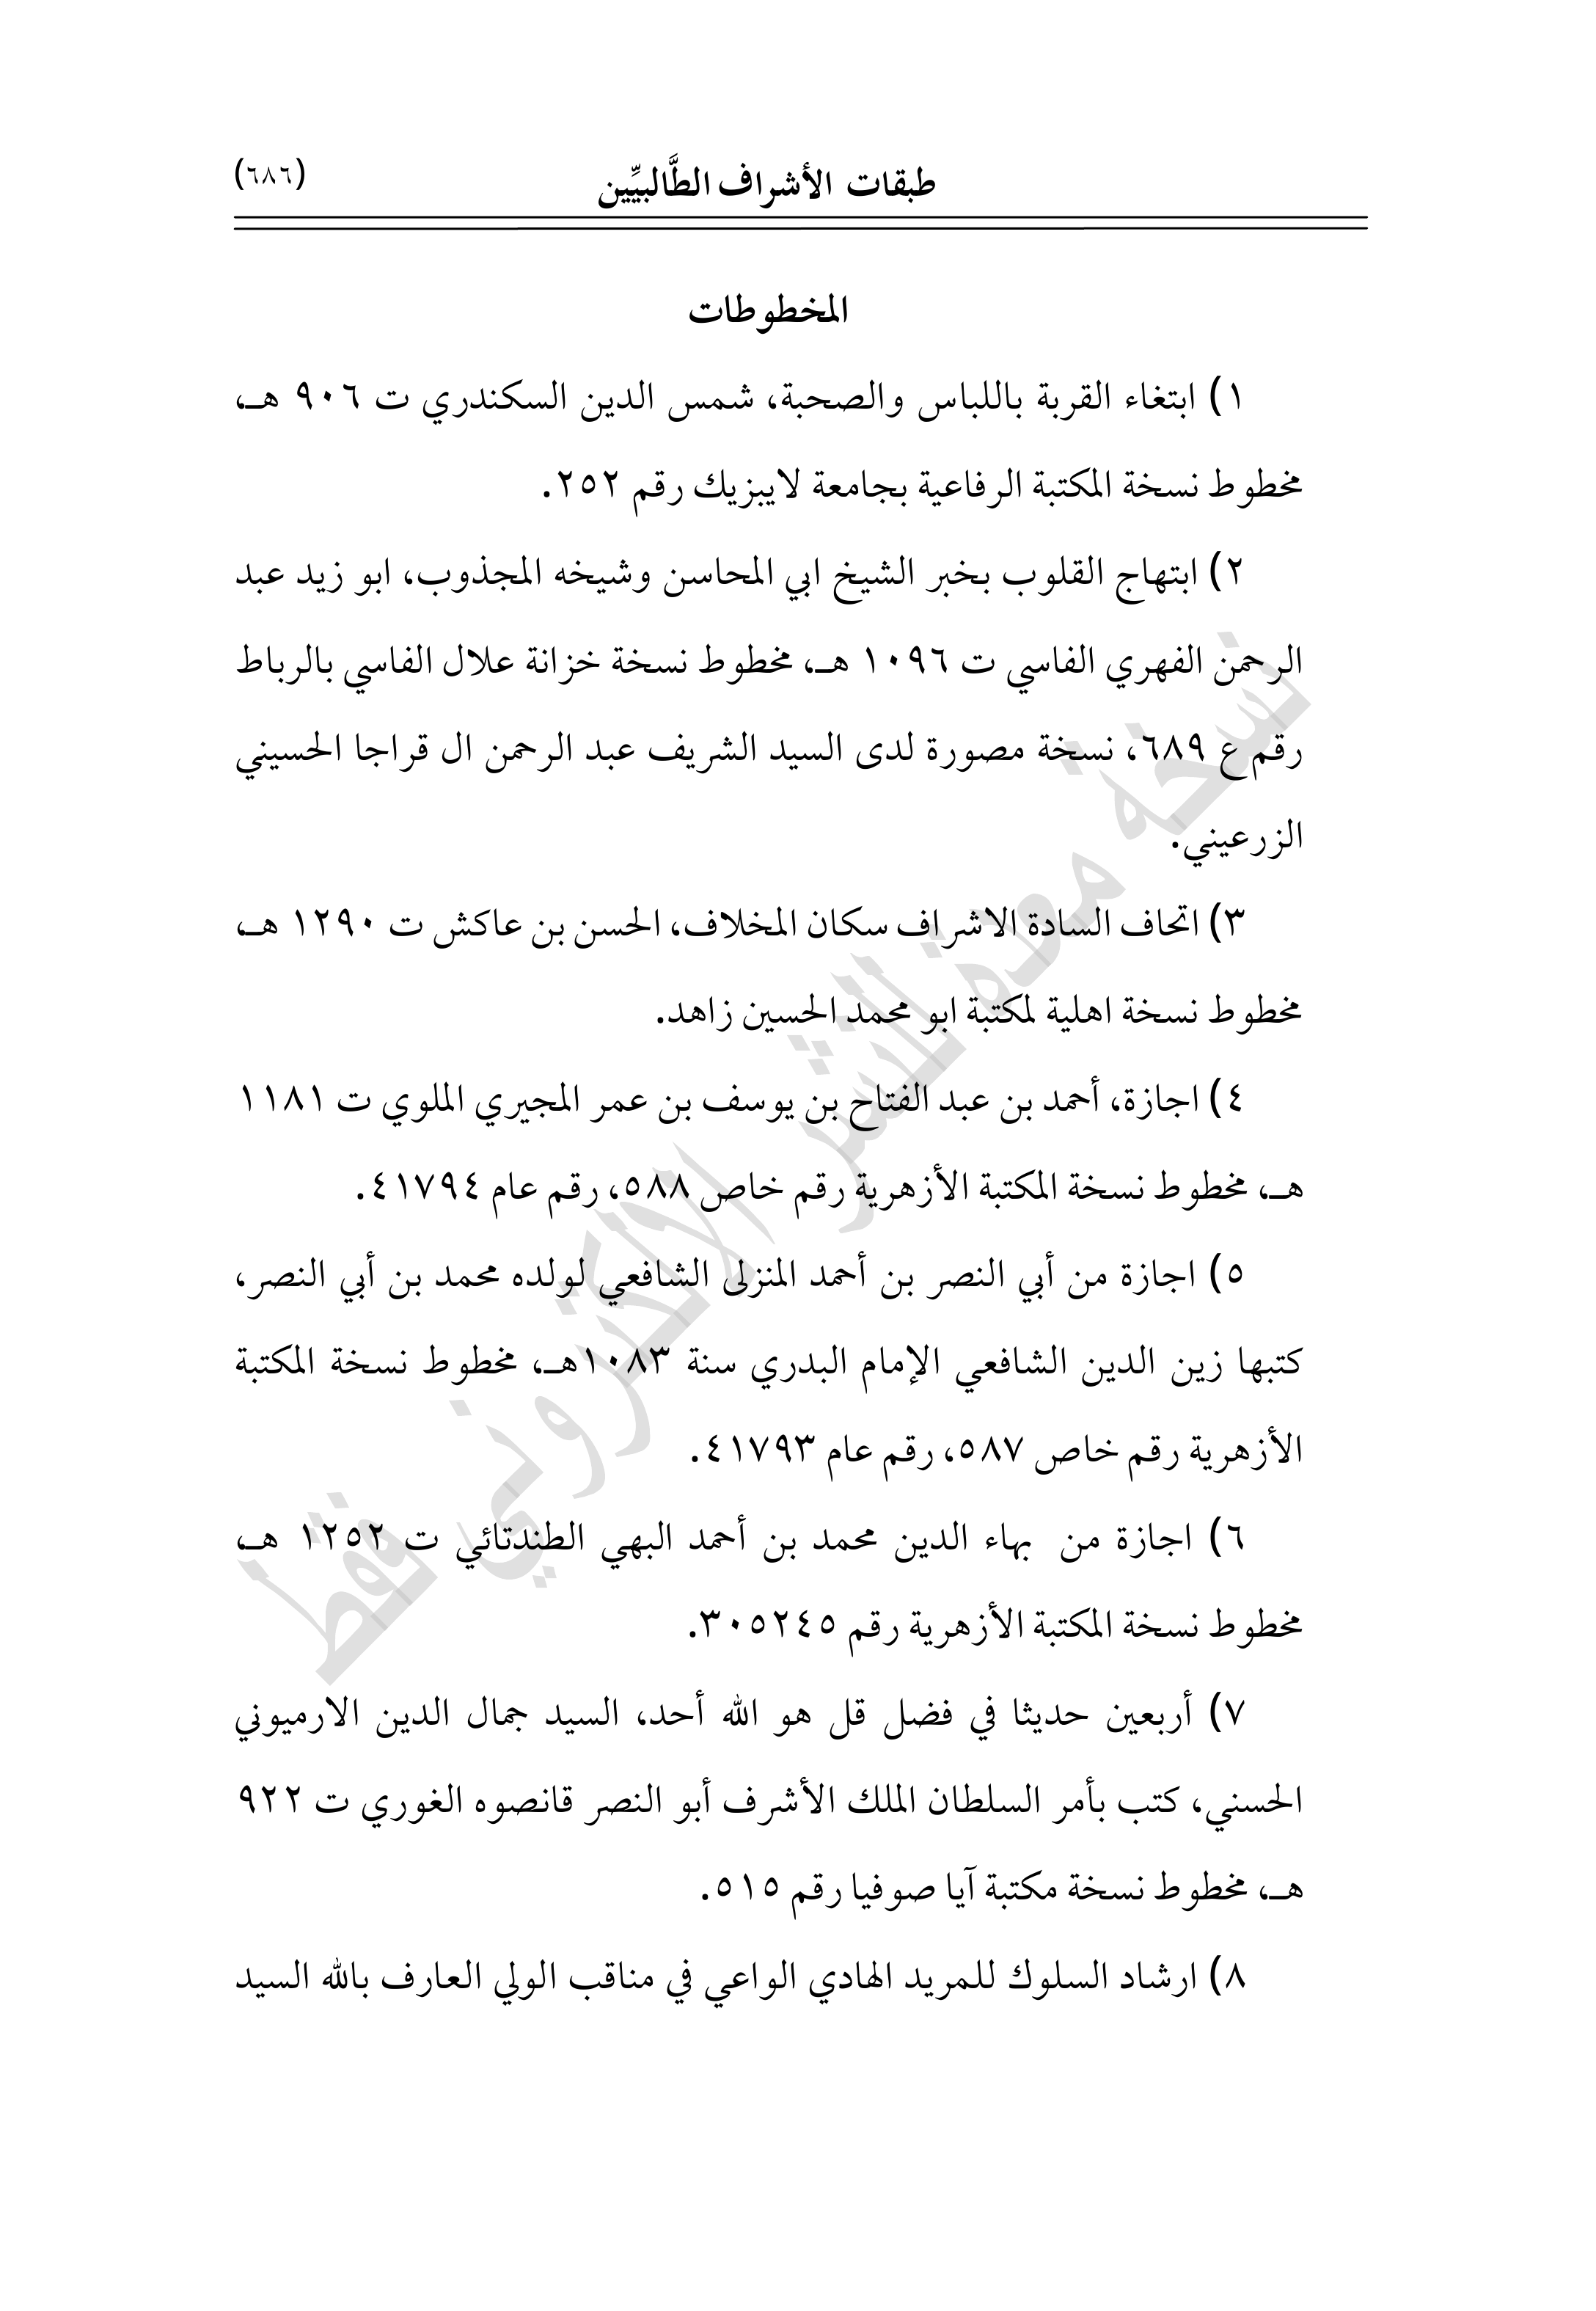 طبقات الأشراف الطَّالبيِّين
(٦٨٦)
المخطوطات
١) ابتغاء القربة باللباس والصحبة، شمس الدين السكندري ت ٩٠٦ هـ،
مخطوط نسخة المكتبة الرفاعية بجامعة لايبزيك رقم ٢٥٢.
٢) ابتهاج القلوب بخبر الشيخ ابي المحاسن وشيخه المجذوب، ابو زيد عبد
الرحمن الفهري الفاسي ت ١٠٩٦ هـ، مخطوط نسخة خزانة علال الفاسي بالرباط
رقم ع ٦٨٩، نسخة مصورة لدى السيد الشريف عبد الرحمن ال قراجا الحسيني
الزرعيني.
٣) اتحاف السادة الاشراف سكان المخلاف، الحسن بن عاكش ت ١٢٩٠ هـ،
مخطوط نسخة اهلية لمكتبة ابو محمد الحسين زاهد.
٤) اجازة، أحمد بن عبد الفتاح بن يوسف بن عمر المجيري الملوي ت ١١٨١
هـ، مخطوط نسخة المكتبة الأزهرية رقم خاص ٥٨٨، رقم عام ٤١٧٩٤.
٥) اجازة من أبي النصر بن أحمد المنزلى الشافعي لولده محمد بن أبي النصر،
كتبها زين الدين الشافعي الإمام البدري سنة ١٠٨٣هـ، مخطوط نسخة المكتبة
الأزهرية رقم خاص ٥٨٧، رقم عام ٤١٧٩٣.
٦) اجازة من بهاء الدين محمد بن أحمد البهي الطندتائي ت ١٢٥٢ هـ،
مخطوط نسخة المكتبة الأزهرية رقم ٣٠٥٢٤٥.
٧) أربعين حديثا في فضل قل هو الله أحد، السيد جمال الدين الارميوني
الحسني، كتب بأمر السلطان الملك الأشرف أبو النصر قانصوه الغوري ت ٩٢٢
هـ، مخطوط نسخة مكتبة آيا صوفيا رقم ٥١٥.
٨) ارشاد السلوك للمريد الهادي الواعي في مناقب الولي العارف بالله السيد
نسخة معدة للنشر الالكتروني فقط